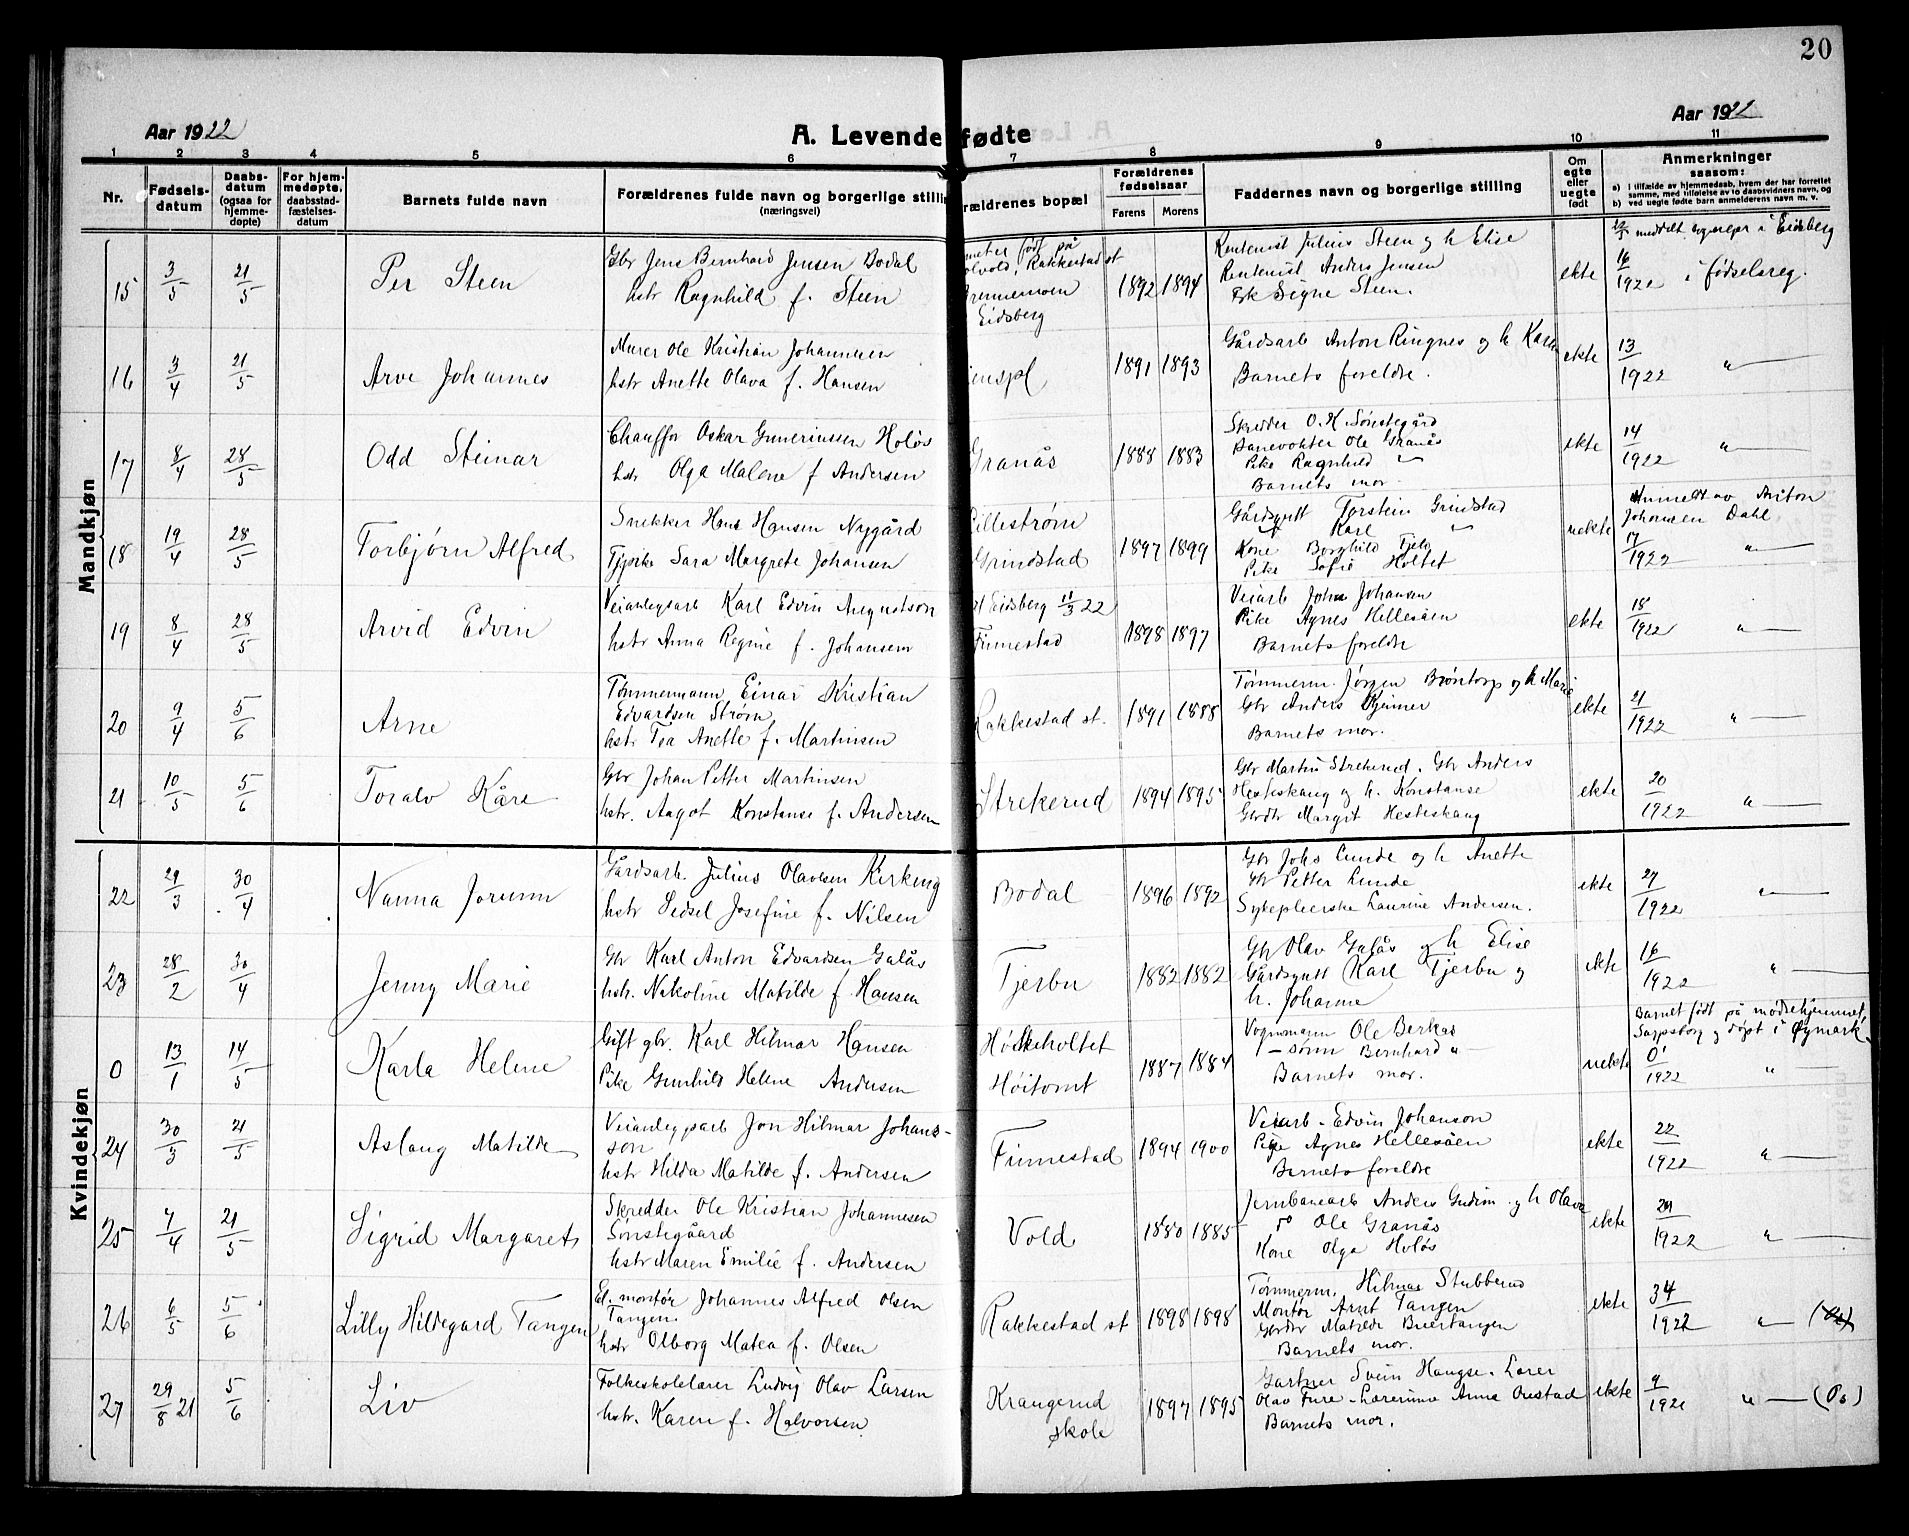 20
Aar 1922
A. Levendefødte
Aar 1922
1 2 3 4 5 6 7 8 9 10 11
Nr.
Fødsels-
datum
Daabs-
datum
(ogsaa for
hjemme-
døpte)
For hjem-
medøpte,
daabsstad-
fæstelses-
datum
Barnets fulde navn
Forældrenes fulde navn og borgerlige stilling
(næringsvei)
Forældrenes bopæl
Forældrenes
fødselsaar
Farens Morens
Faddernes navn og borgerlige stilling
Om
egte
eller
uegte
født
Anmerkninger
saasom:
a) i tilfælde av hjemmedaab, hvem der har forrettet
samme, med tilføielse av to daabsvidners navn, og
b) ved uegte fødte barn anmelderens navn m. v.
Mandkjøn
15 3/5 21/5 Per Steen
Gbr Jens Bernhard Jensen Bodal
hstr Ragnhild f. Steen
Eidsberg
1892 1894
Rentenist Julius Steen og h Elise
Rentenist Anders Jensen
Frk Signe Steen.
ekte
meddelt sognepr i Eidsberg
16/1922 i fødselsreg.
16 3/4 21/5 Arve Johannes
Murer Ole Kristian Johannesen
hstr Anette Olava f. Hansen
1891 1893
Gårdsarb Anton Ringnes og h Karen
Barnets foreldre.
ekte
13/1922 "
17 8/4 28/5 Odd Steinar
Chauffør Oskar Gunerinssen Holøs
hstr Olga Malene f Andersen
Granås
1888 1883
Skredder O. K. Sønstegård
Banevokter Ole Granås
Pike Ragnhild "
Barnets mor.
ekte
14/1922 "
18 19/4 28/5 Torbjørn Alfred
Snekker Hans Hansen Nygård
Tjpike Sara Margrete Johansen
Lillestrøm
Grindstad
1897 1899
Gårdsgutt Torstein Grindstad
" Karl "
Kone Borghild Fjeld
Pike Sofie Holtet
uekte
Anmeldt av Anton
Johansen Dahl.
17/1922 "
19 8/4 28/5 Arvid Edvin
Veianlegsarb Karl Edvin Augustson
hstr Anna Regine f. Johansen
Eidsberg 11/3 22
Finnestad
1898 1897
Veiarb John Johansen
Pike Agnes Hellesåen
Barnets foreldre
ekte
18/1922 "
20 9/4 5/6 Arne
Tømmermann Einar Kristian
Edvardsen Strøm
hstr Tea Anette f. Martinsen
Rakkestad st.
1891 1888
Tømmerm. Jørgen Brøntorp og h Marie
Gbr Anders
Barnets mor.
ekte
21/1922 "
21 10/5 5/6 Toralv Kåre
Gbr Johan Petter Martinsen
hstr. Aagot Konstanse f. Andersen
Strekerud
1894 1895
Gbr Martin Strekerud. Gbr Anders
Hesteskaug og h. Konstanse
Gbrdtr Margit Hesteskaug
ekte
20/1922 "
Kvindekjøn
22 29/3 30/4 Nanna Jorunn
Gårdsarb. Julius Olavesen Kirkeng
hstr Sidsel Josefine f. Nilsen
Bodal
1896 1892
Gbr Johs Lunde og h Anette
Gbr Petter Lunde
Sykepleierske Laurine Andersen.
ekte
27/1922 "
23 28/2 30/4 Jenny Marie
Gbr Karl Anton Edvardsen Galås
hstr. Nikoline Matilde f. Hansen
Tjerbu
1882 1882
Gbr Olav Galås og h Elise
Gårdsgutt Karl Tjerbu og
h. Johanne
ekte
16/1922 "
0 13/1 14/5 Karla Helene
Gift gbr. Karl Hilmar Hansen
Pike Gunhild Helene Andersen
Høitomt
1887 1884
Vognmann Ole Berkas
— sønn Bernhard "
Barnets mor.
uekte
Barnet født på mødrehjemmet,
Sarpsborg og døpt i Øymark.
0/1922 "
24 30/3 21/5 Aslaug Matilde
Veianlegsarb Jon Hilmar Johans-
son
hstr Hilda Matilde f. Andersen
Finnestad
1894 1900
Veiarb. Edvin Johanson
Pige Agnes Hellesåen
Barnets foreldre
ekte
22/1922 "
25 7/4 21/5 Sigrid Margarete
Skredder Ole Kristian Johannesen
Sønstegåard
hstr Maren Emilie f. Andersen
Vold
1880 1885
Jernbanearb Anders Gudim og h Olava
Do Ole Granås
Kone Olga Holøs
ekte
29/1922 "
26 6/5 5/6 Lilly Hildegard Tangen
El. montør Johannes Alfred Olsen
Tangen.
hstr Olborg Matea f. Olsen
Rakkestad st
1898 1898
Tømmerm. Hilmar Stubberud
Montør Arnt Tangen
Gbrdtr Matilde Buertangen
Barnets mor.
ekte
34/1922 "
27 29/8 21 5/6 Liv
Folkeskolelærer Ludvig Olav Larsen
hstr. Karen f. Halvorsen
Krangerud
skole
1897 1895
Gartner Svein Haugse. Lærer
Olav Fure. Lærerinne Anna Orestad
Barnets mor.
ekte
9/1921 "